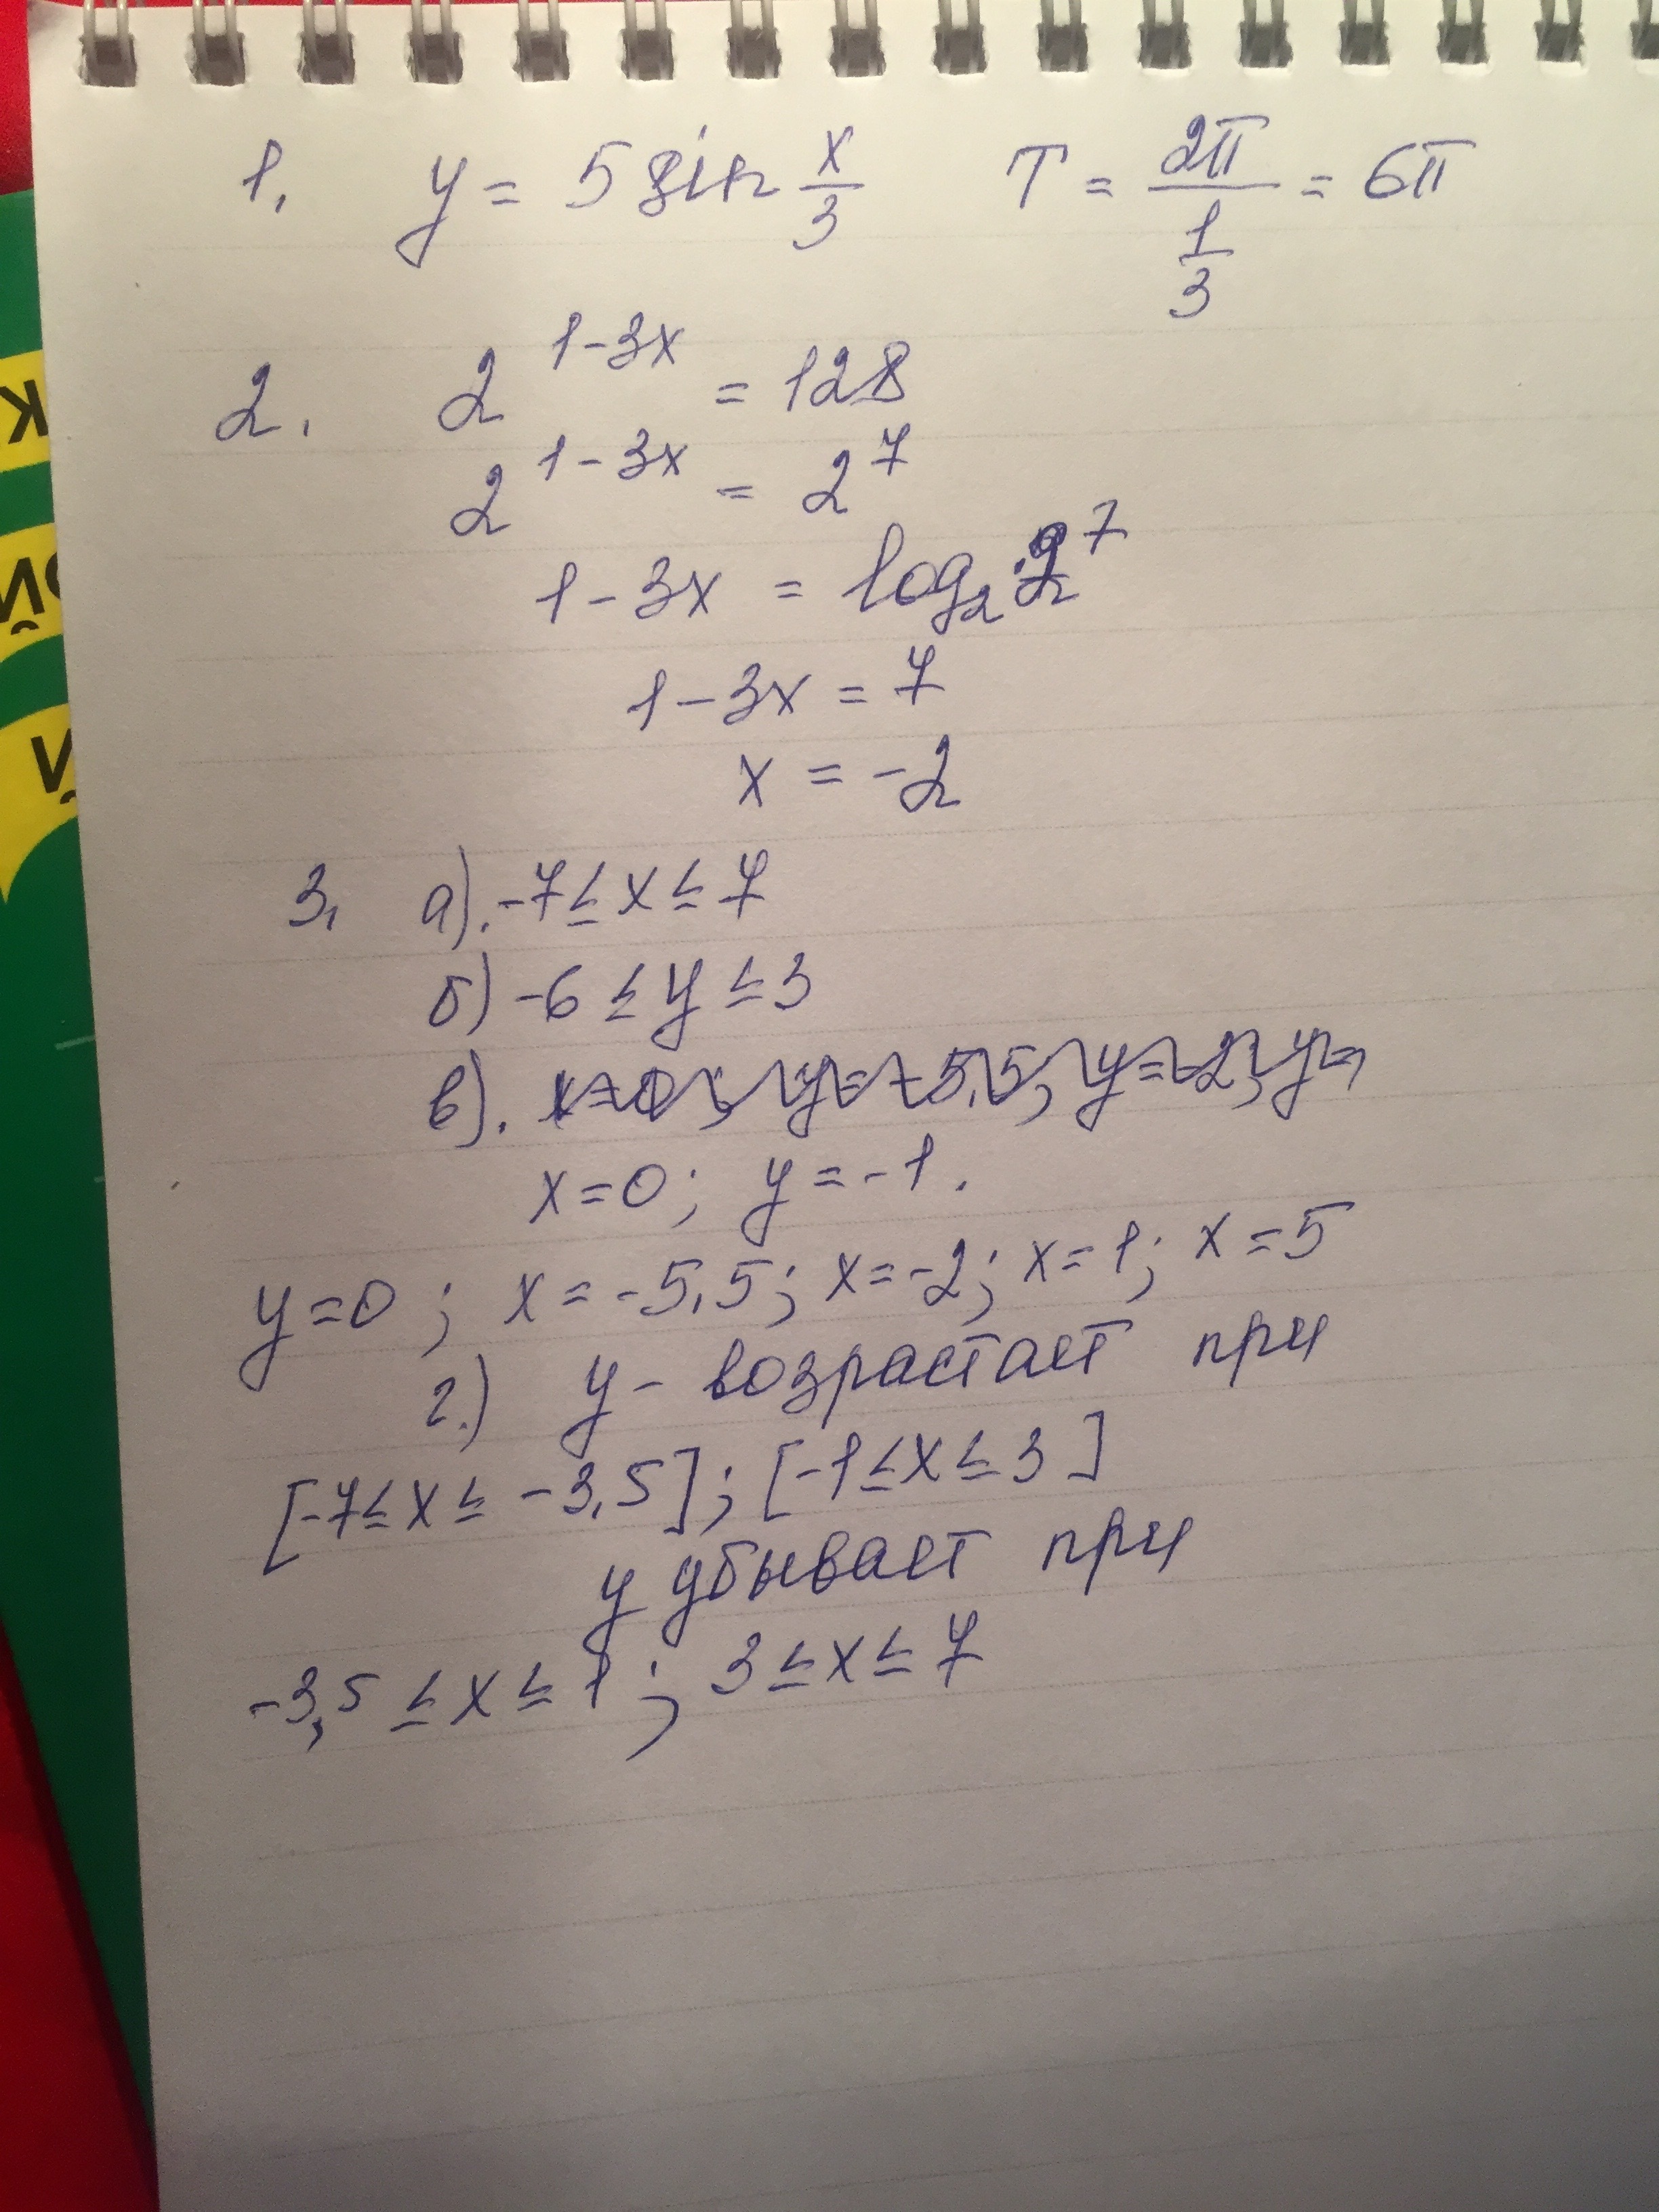 1. y = 5 sin x/3 T = 2π/(1/3) = 6π
2. 2^(1-3x) = 128
2^(1-3x) = 2^7
1-3x = log₂ 2^7
1-3x = 7
x = -2
3. а). -7 ≤ x ≤ 7
б) -6 ≤ y ≤ 3
в). x=0; y=-5,5; y=-2; y=
x=0; y=-1.
y=0; x=-5,5; x=-2; x=1; x=5
г.) y - возрастает при
[-7≤x≤ -3,5]; [-1≤x≤3]
y убывает при
-3,5 ≤ x ≤ 1; 3 ≤ x ≤ 7